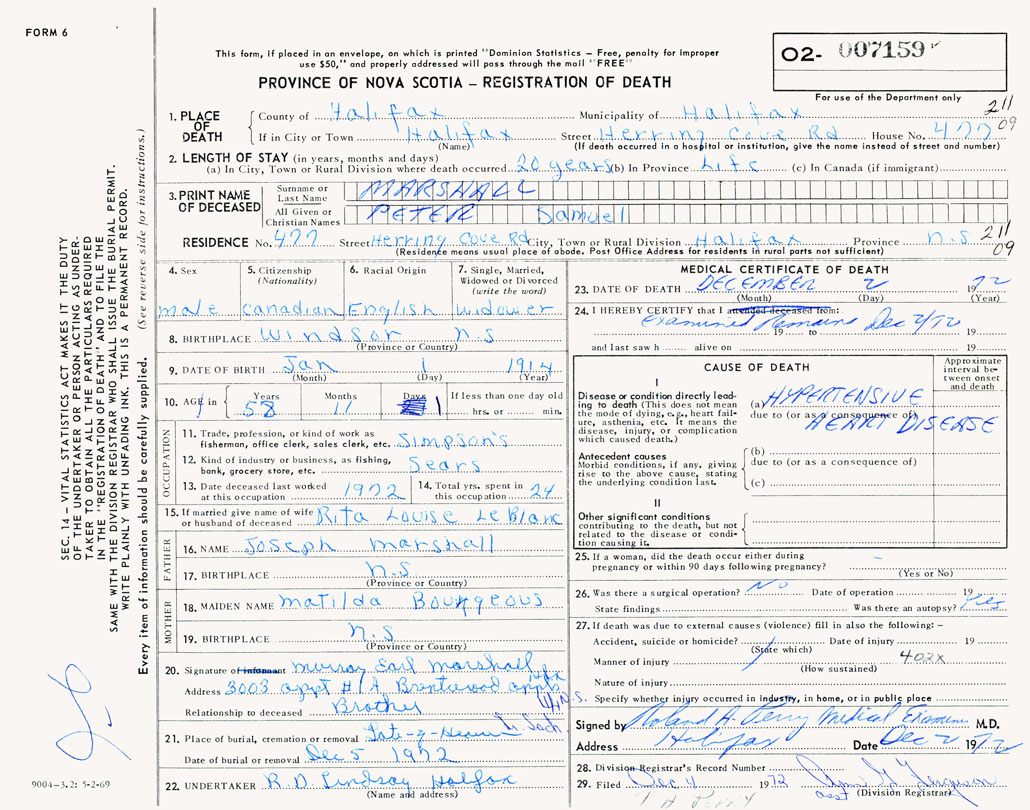 FORM 6
This form, if placed in an envelope, on which is printed "Dominion Statistics – Free, penalty for improper
use $50," and properly addressed will pass through the mail "FREE"
PROVINCE OF NOVA SCOTIA – REGISTRATION OF DEATH
O2- 007159
For use of the Department only
211
09
1. PLACE OF DEATH
County of Halifax Municipality of Halifax
If in City or Town Halifax Street Herring Cove Rd House No. 477
(Name) (If death occurred in a hospital or institution, give the name instead of street and number)
2. LENGTH OF STAY (in years, months and days)
(a) In City, Town or Rural Division where death occurred 20 years (b) In Province Life (c) In Canada (if immigrant)
3. PRINT NAME OF DECEASED
Surname or Last Name MARSHALL
All Given or Christian Names PETER Samuel
RESIDENCE No. 477 Street Herring Cove Rd City, Town or Rural Division Halifax Province N.S
211
09
(Residence means usual place of abode. Post Office Address for residents in rural parts not sufficient)
4. Sex
male
5. Citizenship
(Nationality)
Canadian
6. Racial Origin
English
7. Single, Married,
Widowed or Divorced
(write the word)
Widower
8. BIRTHPLACE Windsor N.S
(Province or Country)
9. DATE OF BIRTH Jan 1 1914
(Month) (Day) (Year)
10. AGE
Years Months Days If less than one day old
58 11 1 hrs. or min.
OCCUPATION
11. Trade, profession, or kind of work as
fisherman, office clerk, sales clerk, etc. Simpson's
12. Kind of industry or business, as fishing,
bank, grocery store, etc. Sears
13. Date deceased last worked
at this occupation 1972
14. Total yrs. spent in
this occupation 24
15. If married give name of wife
or husband of deceased Rita Louise LeBlanc
FATHER
16. NAME Joseph Marshall
17. BIRTHPLACE N.S
(Province or Country)
MOTHER
18. MAIDEN NAME Matilda Bourgeous
19. BIRTHPLACE N.S
(Province or Country)
20. Signature of informant Murray Earl Marshall
Address 3003 appt #1A Brentwood appts
Hfx N.S.
Relationship to deceased Brother
21. Place of burial, cremation or removal Gate-of-Heaven
Sack
Date of burial or removal Dec 5 1972
22. UNDERTAKER R.D. Lindsay Halfax
(Name and address)
MEDICAL CERTIFICATE OF DEATH
23. DATE OF DEATH DECEMBER 2 1972
(Month) (Day) (Year)
24. I HEREBY CERTIFY that I attended deceased from:
Examined Remains Dec 2/72
19 to 19
and last saw h alive on 19
CAUSE OF DEATH
Approximate
interval be-
tween onset
and death
I
Disease or condition directly lead-
ing to death (This does not mean
the mode of dying, e.g., heart fail-
ure, asthenia, etc. It means the
disease, injury, or complication
which caused death.)
(a) HYPERTENSIVE
due to (or as a consequence of)
HEART DISEASE
Antecedent causes
Morbid conditions, if any, giving
rise to the above cause, stating
the underlying condition last.
(b)
due to (or as a consequence of)
(c)
II
Other significant conditions
contributing to the death, but not
related to the disease or condi-
tion causing it.
25. If a woman, did the death occur either during
pregnancy or within 90 days following pregnancy? –
(Yes or No)
26. Was there a surgical operation? No Date of operation 19
State findings Was there an autopsy? Yes
27. If death was due to external causes (violence) fill in also the following: –
Accident, suicide or homicide? Date of injury 19
(State which)
Manner of injury 402X
(How sustained)
Nature of injury
Specify whether injury occurred in industry, in home, or in public place
Signed by Roland A. Perry Medical Examiner M.D.
Address Halifax Date Dec 2 1972
28. Division Registrar's Record Number
29. Filed Dec 4 1972 Ferguson
(Division Registrar)
PERRY
SEC. 14 – VITAL STATISTICS ACT MAKES IT THE DUTY
OF THE UNDERTAKER OR PERSON ACTING AS UNDER-
TAKER TO OBTAIN ALL THE PARTICULARS REQUIRED
IN THE "REGISTRATION OF DEATH" AND TO FILE THE
SAME WITH THE DIVISION REGISTRAR WHO SHALL ISSUE THE BURIAL PERMIT.
WRITE PLAINLY WITH UNFADING INK. THIS IS A PERMANENT RECORD.
Every item of information should be carefully supplied. (See reverse side for instructions.)
9004-3.2: 5-2-69